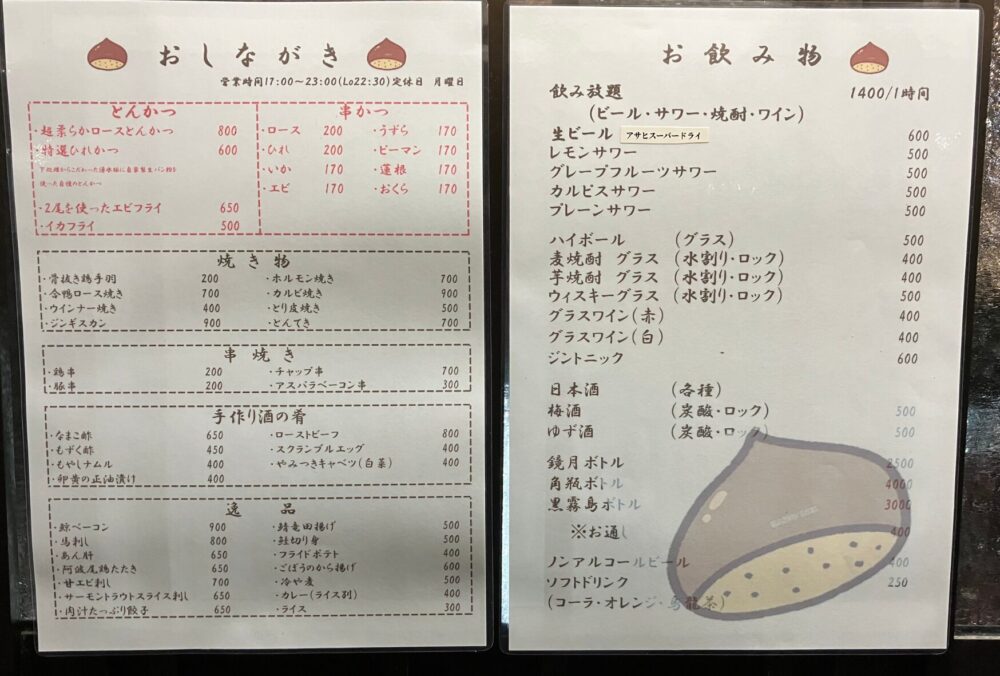 おしながき
営業時間17:00～23:00(Lo22:30)定休日 月曜日
とんかつ
・超柔らかロースとんかつ 800
・特選ひれかつ 600
使った自慢のとんかつ
・2尾を使ったエビフライ 650
・イカフライ 500
串かつ
・ロース 200 ・うずら 170
・ひれ 200 ・ピーマン 170
・いか 170 ・蓮根 170
・エビ 170 ・おくら 170
焼き物
・骨抜き鶏手羽 200 ・ホルモン焼き 700
・合鴨ロース焼き 700 ・カルビ焼き 900
・ウインナー焼き 400 ・とり皮焼き 500
・ジンギスカン 900 ・とんてき 700
串焼き
・鶏串 200 ・チャップ串 700
・豚串 200 ・アスパラベーコン串 300
手作り酒の肴
・なまこ酢 650 ・ローストビーフ 800
・もずく酢 450 ・スクランブルエッグ 400
・もやしナムル 400 ・やみつきキャベツ(白菜) 400
・卵黄の正油漬け 400
逸品
・鯨ベーコン 900 ・鯖竜田揚げ 500
・馬刺し 800 ・鮭切り身 500
・あん肝 650 ・フライドポテト 400
・阿波尾鶏たたき 650 ・ごぼうのから揚げ 600
・甘エビ刺し 700 ・冷や麦 500
・サーモントラウトスライス刺し 650 ・カレー(ライス別) 400
・肉汁たっぷり餃子 650 ・ライス 300
お飲み物
飲み放題 1400/1時間
(ビール・サワー・焼酎・ワイン)
生ビール アサヒスーパードライ 600
レモンサワー 500
グレープフルーツサワー 500
カルピスサワー 500
プレーンサワー 500
ハイボール (グラス) 500
麦焼酎 グラス (水割り・ロック) 400
芋焼酎 グラス (水割り・ロック) 400
ウィスキーグラス (水割り・ロック) 500
グラスワイン(赤) 400
グラスワイン(白) 400
ジントニック 600
日本酒 (各種)
梅酒 (炭酸・ロック) 500
ゆず酒 (炭酸・ロック) 500
鏡月ボトル 2500
角瓶ボトル 4000
黒霧島ボトル 3000
※お通し 400
ノンアルコールビール 400
ソフトドリンク 250
(コーラ・オレンジ・烏龍茶)